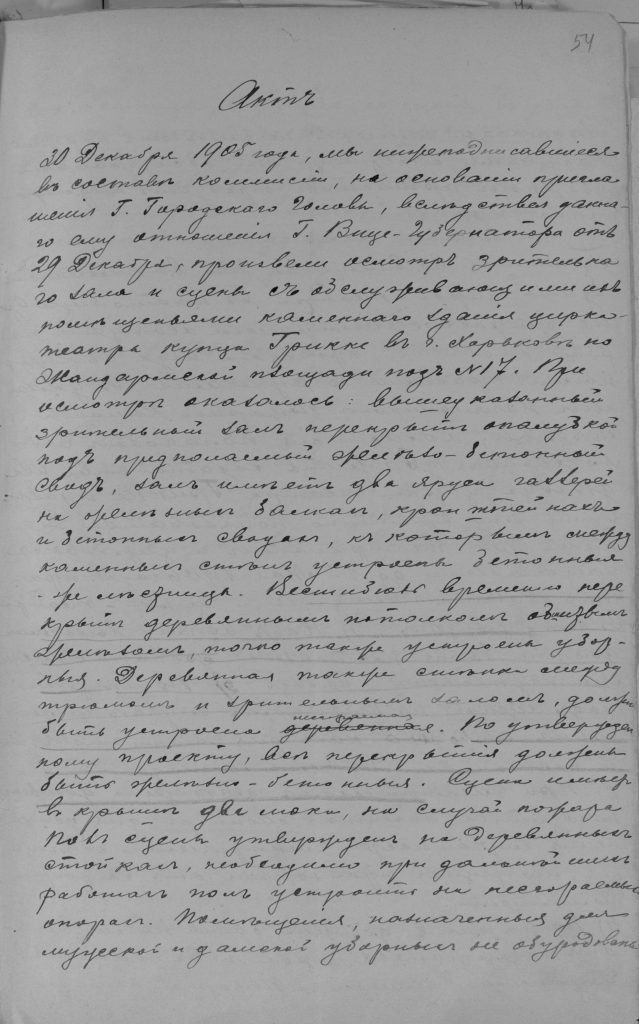 54
Актъ
30 Декабря 1905 года, мы нижеподписавшіеся
въ составѣ коммисіи, на основаніи пригла
шенія Г. Городскаго Головы, вслѣдствіе данна-
го ему отношенія Г. Вице-Губернатора отъ
29 Декабря, произвели осмотръ зрительна
го зала и сцены съ обслуживающими ихъ
помѣщеньями каменнаго зданія цирка-
театра купца Грикке въ г. Харьковѣ по
Жандармской площади подъ №17. При
осмотрѣ оказалось: вышеуказанный
зрительный залъ перекрытъ опалубкой
подъ предполагаемый желѣзо-бетонный
сводъ, залъ имѣетъ два яруса галлерей
на желѣзныхъ балкахъ, кронштейнахъ
и бетонныхъ сводахъ, къ которымъ между
каменныхъ стѣнъ устроены бетонныя
же лѣстницы. Вестибюль временно пере
крытъ деревяннымъ потолкомъ обшитымъ
желѣзомъ, точно также устроены убор-
ныя. Деревянная также стѣнка между
трюмомъ и зрительнымъ заломъ, должна
быть устроена несгораемая деревянная. По утвержден
ному проекту, всѣ перекрытія должны
быть желѣзно-бетонныя. Сцена имѣетъ
въ крышѣ два люка, на случай пожара
Полъ сцены утвержденъ на деревянныхъ
стойкахъ, необходимо при дальнѣйшихъ
работахъ полъ устроить на несгораемыхъ
опорахъ. Помѣщенія, назначенныя для
мужской и дамской уборныхъ не оборудованы